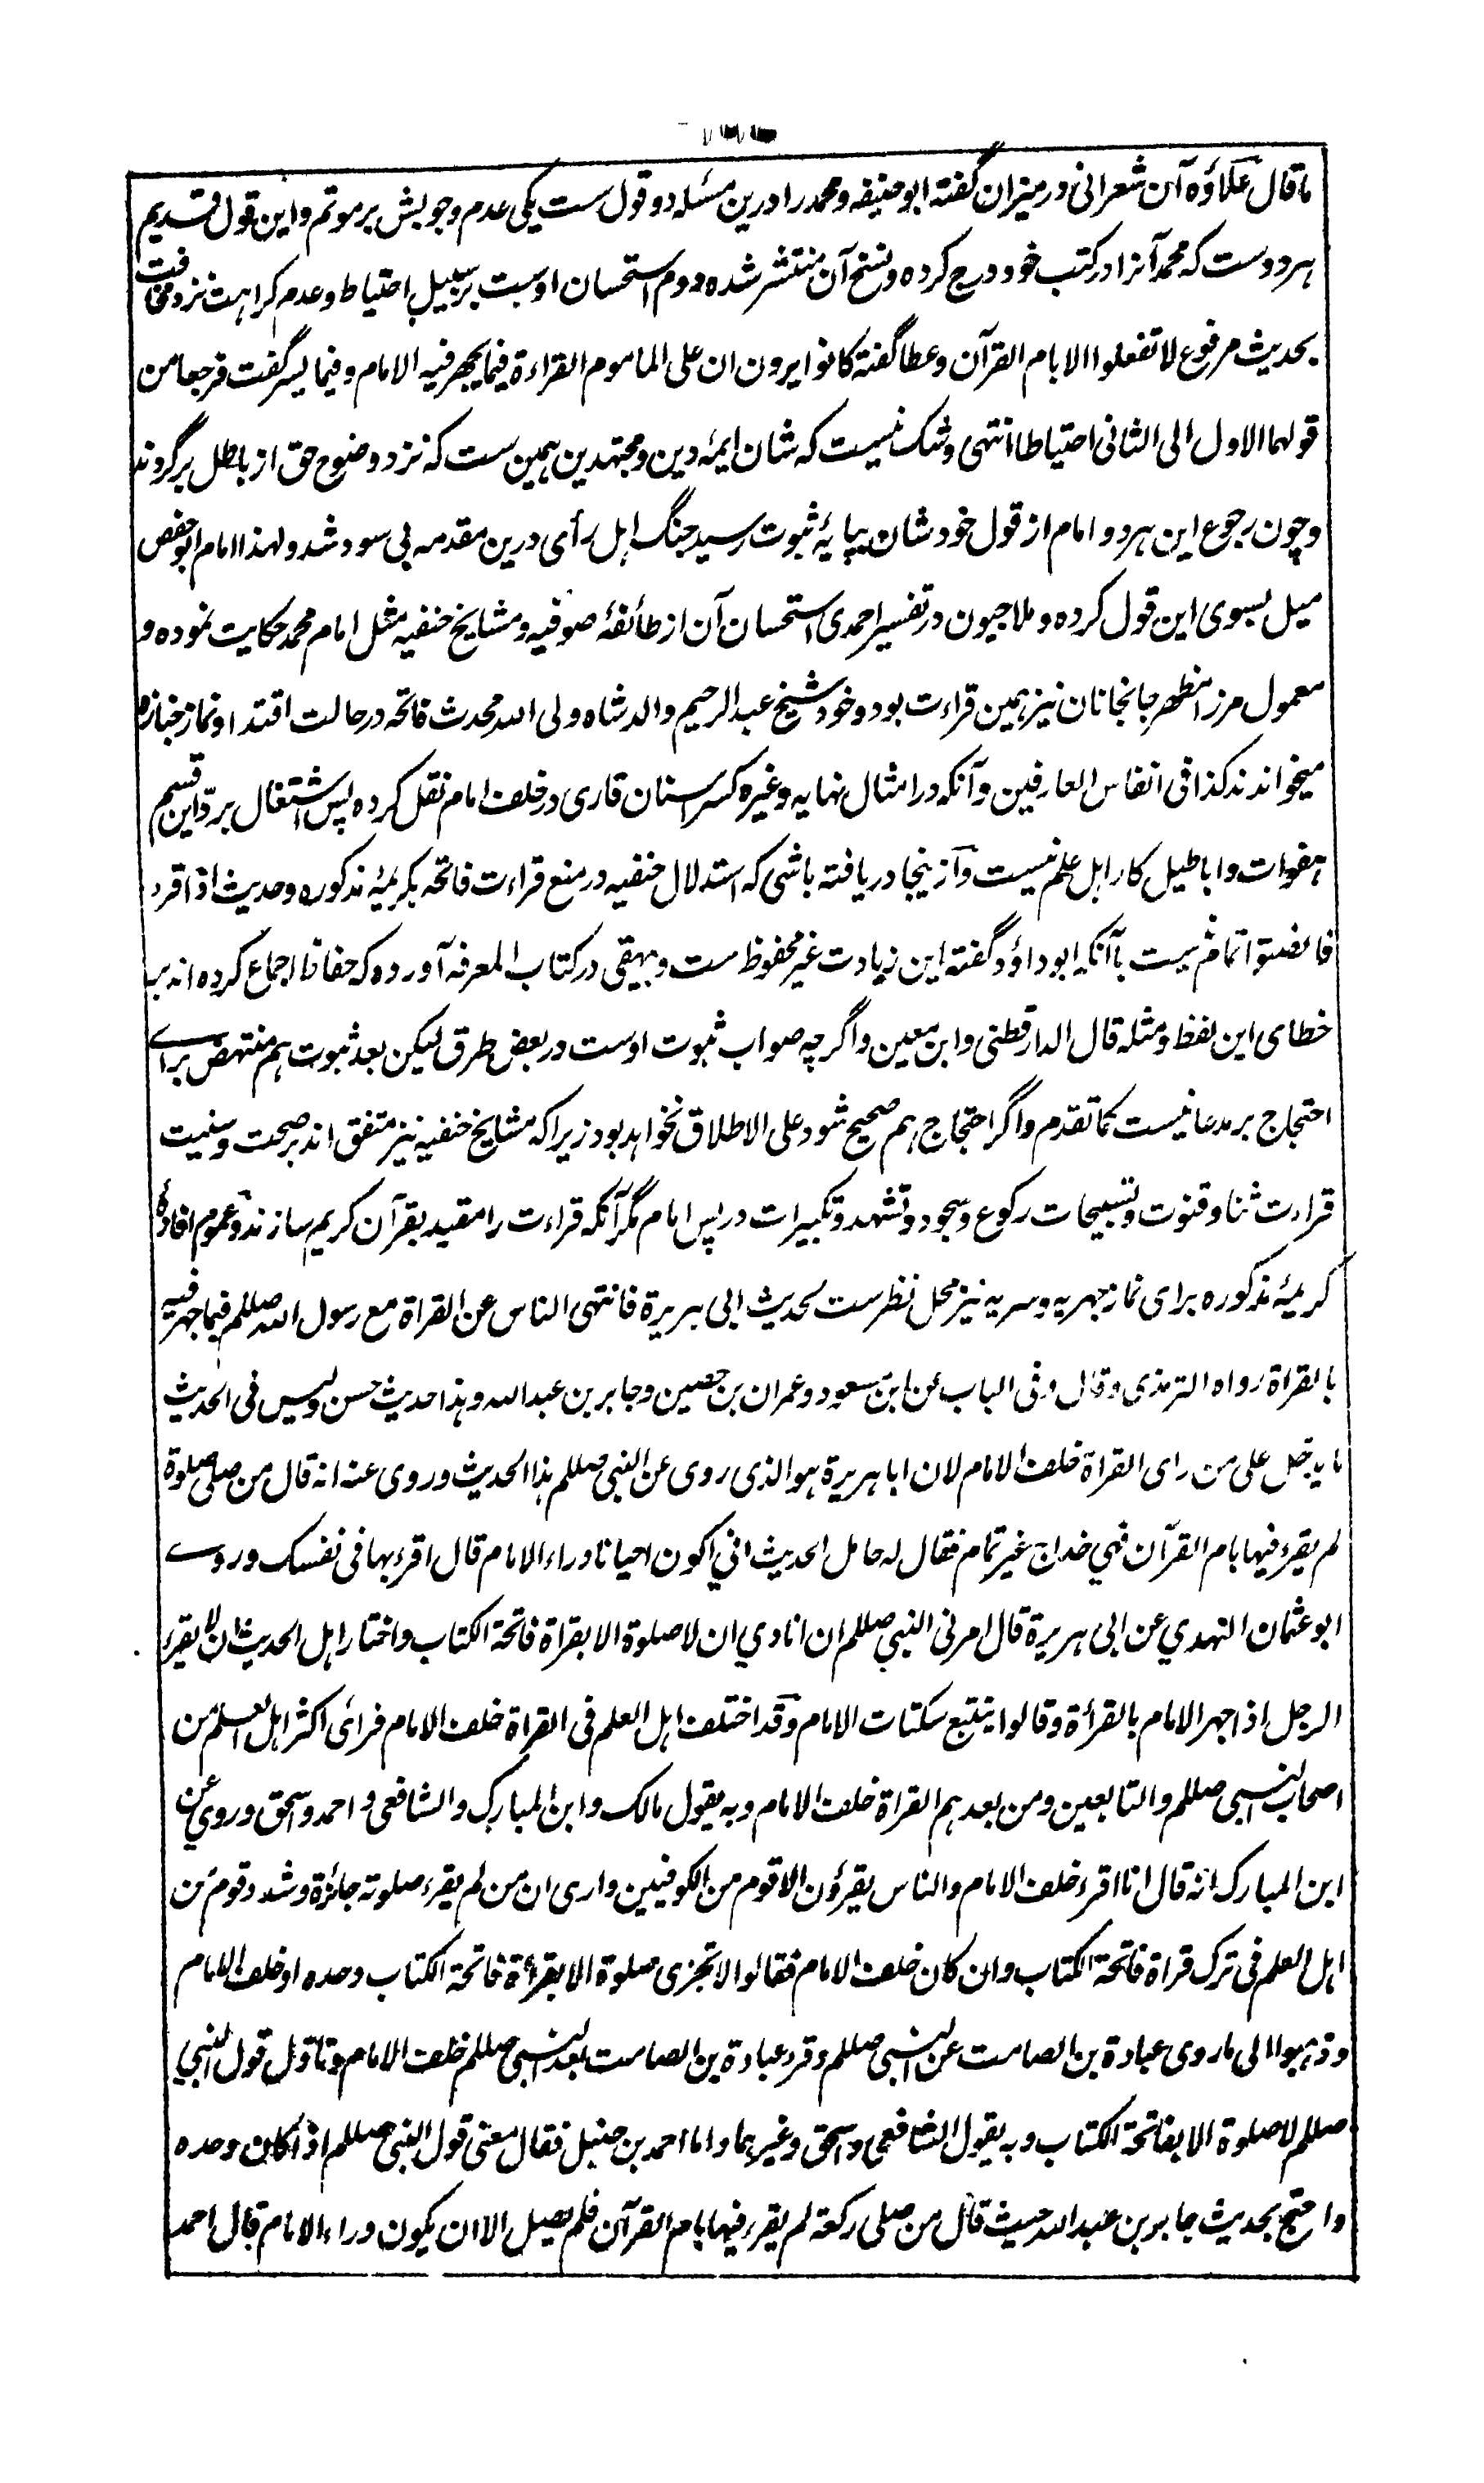 ما قال علاوه آن شعرانی در میزان گفته ابو حنیفه و محمد را درین مسئله دو قول ست یکی عدم وجوبش بر موتم و این قول قدیم
هر دوست که محمد آنرا در کتب خود درج کرده و نسخ آن منتشر شده دوم استحسان اوست بر سبیل احتیاط و عدم کراهت نزد مخافت
بحدیث مرفوع لا تفعلوا الا بام القرآن و عطا گفته کانوا یرون ان علی الماموم القراءة فیما یجهر فیه الامام و فیما یسر گفت فرجعا من
قولهما الاول الی الثانی احتیاطا انتهی و شک نیست که شان ایمه دین و مجتهدین همین ست که نزد وضوح حق از باطل برگردند
و چون رجوع این هر دو امام از قول خود شان بپایهٔ ثبوت رسید جنگ اهل رأی درین مقدمه بی سود شد و لهذا امام ابو حفص
میل بسوی این قول کرده و ملا جیون در تفسیر احمدی استحسان آن از طائفهٔ صوفیه و مشایخ حنفیه مثل امام محمد حکایت نموده و
معمول مرزا مظهر جانجانان نیز همین قراءت بود و خود شیخ عبد الرحیم والد شاه ولی الله محدث فاتحه در حالت اقتدا و نماز جنازه
میخواندند کذا فی انفاس العارفین و آنکه در امثال نهایه و غیره کسر اسنان قاری در خلف امام نقل کرده پس اشتغال بردّ این قسم
هفوات و اباطیل کار اهل علم نیست و از ینجا دریافته باشی که استدلال حنفیه در منع قراءت فاتحه بکریمهٔ مذکوره و حدیث اذا قرء
فانصتوا تمام نیست با آنکه ابو داؤد گفته این زیادت غیر محفوظ ست و بیهقی در کتاب المعرفه آورده که حفاظ اجماع کرده اند بر
خطای این لفظ و مثله قال الدارقطنی و ابن معین و اگر چه صواب ثبوت اوست در بعض طرق لیکن بعد ثبوت هم منتهض برای
احتجاج بر مدعا نیست کما تقدم و اگر احتجاج هم صحیح شود علی الاطلاق نخواهد بود زیرا که مشایخ حنفیه نیز متفق اند بر صحت و سنیت
قراءت ثنا و قنوت و تسبیحات رکوع و سجود و تشهد و تکبیرات در پس امام مگر آنکه قراءت را مقید بقرآن کریم سازند و عموم افادهٔ
کریمهٔ مذکوره برای نماز جهریه و سریه نیز محل نظرست لحدیث ابی هریرة فانتهی الناس عن القراة مع رسول الله صللم فیما جهر فیه
بالقراة رواه الترمذی و قال و فی الباب عن ابن مسعود و عمران بن حصین و جابر بن عبد الله و هذا حدیث حسن و لیس فی الحدیث
ما یدخل علی من رای القراة خلف الامام لان ابا هریرة هو الذی روی عن النبی صللم هذا الحدیث و روی عنه انه قال من صلی صلوة
لم یقرء فیها بام القرآن فهی خداج غیر تمام فقال له حامل الحدیث انی اکون احیانا وراء الامام قال اقرء بها فی نفسک و روی
ابو عثمان النهدی عن ابی هریرة قال امرنی النبی صللم ان انادی ان لا صلوة الا بقراة فاتحة الکتاب و اختار اهل الحدیث ان لا یقرء
الرجل اذا جهر الامام بالقرأة و قالوا یتتبع سکتات الامام و قد اختلف اهل العلم فی القراة خلف الامام فرائ اکثر اهل العلم من
اصحاب النبی صللم و التابعین و من بعدهم القراة خلف الامام و به یقول مالک و ابن المبارک و الشافعی و احمد و اسحق و روی عن
ابن المبارک انه قال انا اقرء خلف الامام و الناس یقرؤن الا قوم من الکوفیین و اری ان من لم یقرء صلوته جائزة و شدد قوم من
اهل العلم فی ترک قراة فاتحة الکتاب و ان کان خلف الامام فقالوا لا تجزی صلوة الا بقرأة فاتحة الکتاب وحده او خلف الامام
و ذهبوا الی ما روی عبادة بن الصامت عن النبی صللم و قرء عبادة بن الصامت بعد النبی صللم خلف الامام و تاول قول النبی
صللم لا صلوة الا بفاتحة الکتاب و به یقول الشافعی و اسحق و غیرهما و اما احمد بن حنبل فقال معنی قول النبی صللم اذا کان وحده
و احتج بحدیث جابر بن عبد الله حیث قال من صلی رکعة لم یقرء فیها بام القرآن فلم یصل الا ان یکون وراء الامام قال احمد